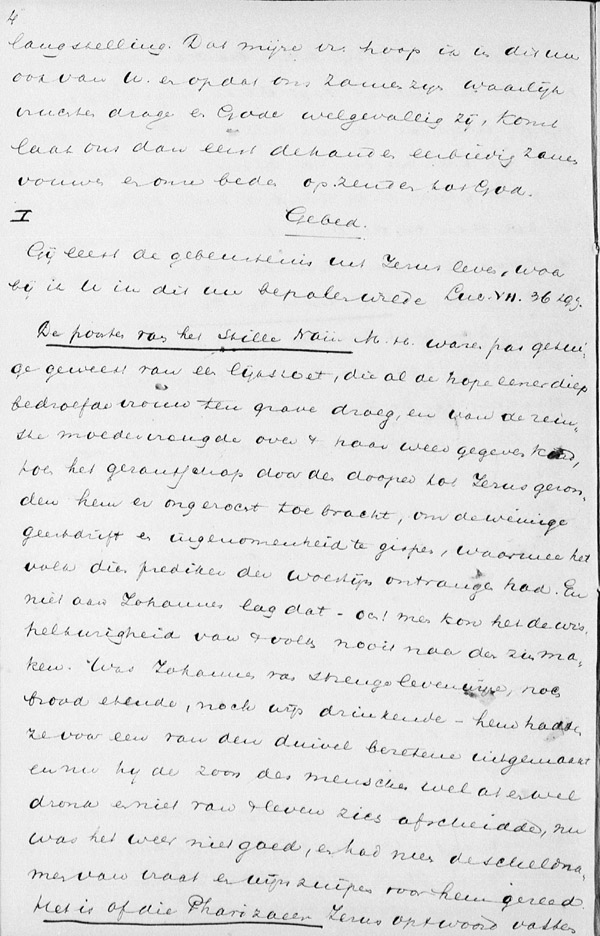 4
langstelling. Dat mijne vr. hoop ik in dit uu
ook van U. en opdat ons zamen zijn waarlijk
vruchten drage en Gode welgevallig zij, komt
laat ons dan eerst de handen eerbiedig zamen
vouwen en onze beden opzenden tot God.
I Gebed.
Gij leest de gebeurtenis uit Jezus leven, waa
bij ik U in dit uu bepalen wilde Luc. VII. 36 vgg.
De poorten van het stille Naïn M. H. waren pas getui-
ge geweest van een lijkstoet, die al de hope eener diep
bedroefde vrouw ten grave droeg, en van de rein-
ste moedervreugde over 't haar weer gegeven kind,
toen het gezantschap door den dooper tot Jezus gezon-
den hem er ongezocht toe bracht, om de weinige
geestdrift en ingenomenheid te gispen, waarmee het
volk dien prediker der woestijn ontvangen had. En
niet aan Johannes lag dat – och! men kon het de wis-
pelturigheid van 't volk nooit naar den zin ma-
ken. Was Johannes van strenge levenswijze, noch
brood etende, noch wijn drinkende – hem hadden
ze voor een van den duivel bezetene uitgemaakt
en nu hij de zoon des menschen wel at en wel
dronk en niet van 't leven zich afscheidde, nu
was het weer niet goed, en had men de scheldna-
men van vraat en wijnzuiper voor hem gereed.
Het is of die Pharizaeer Jezus op 't woord vatten